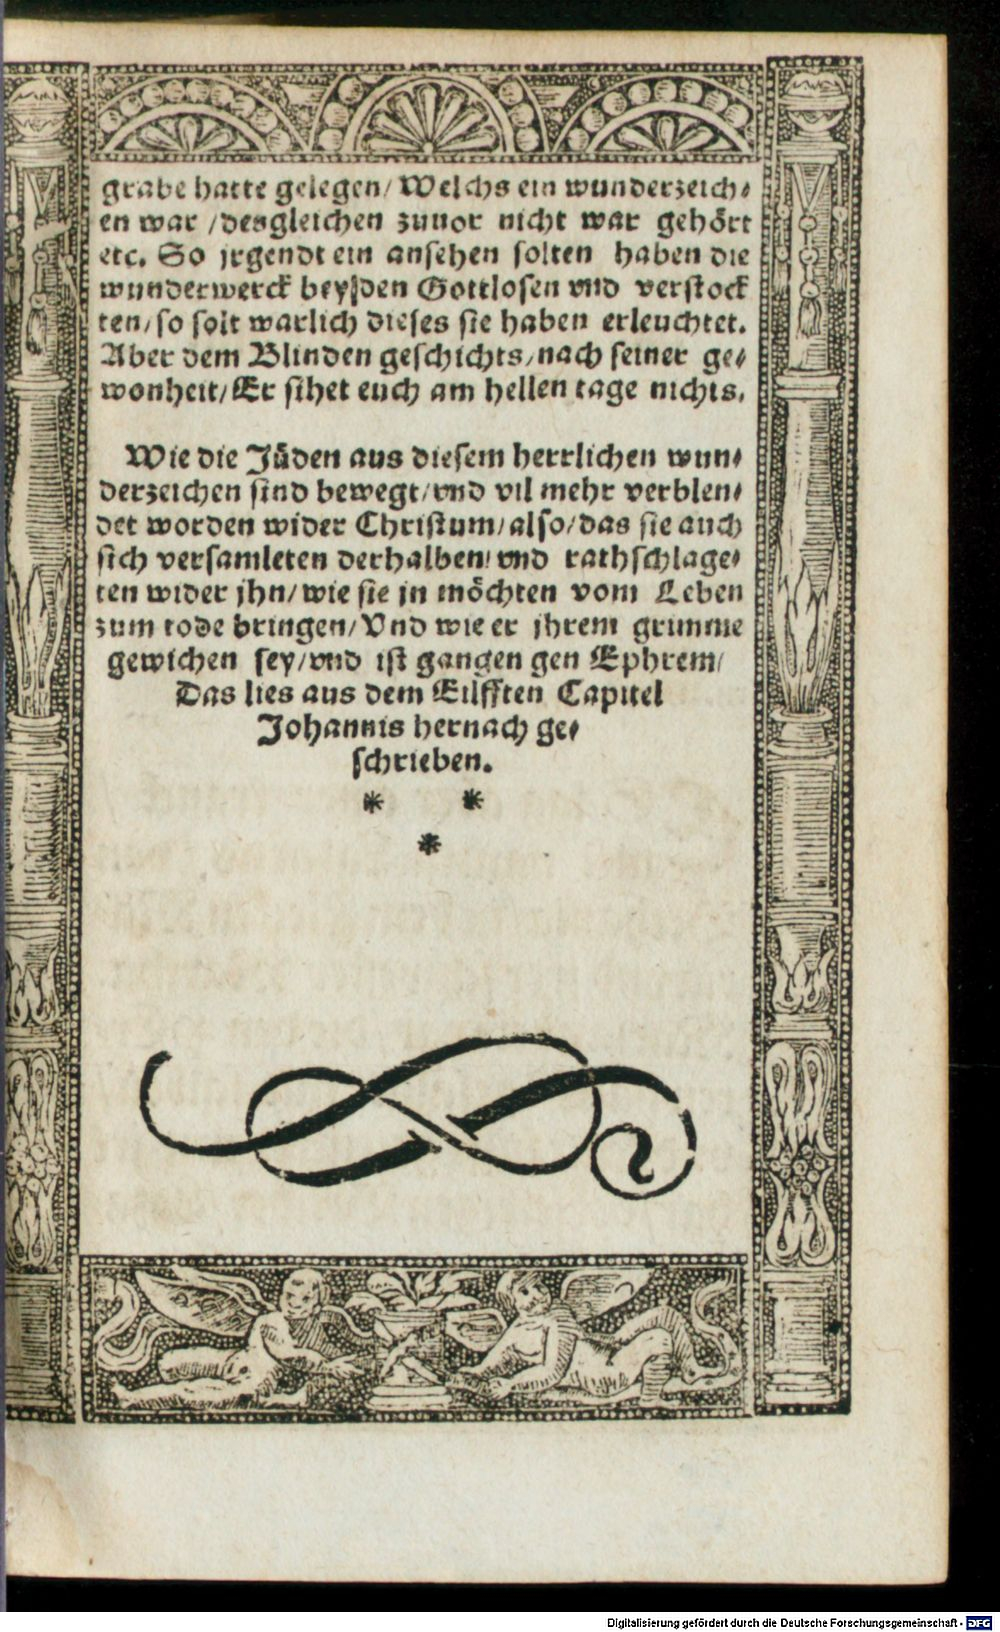 grabe hatte gelegen/ Welchs ein wunderzeich⸗
en war /desgleichen zuuor nicht war gehört
etc. So jrgendt ein ansehen solten haben die
wunderwerck beyden Gottlosen vnd verstock
ten/so solt warlich dieses sie haben erleuchtet.
Aber dem Blinden geschichts/nach seiner ge⸗
wonheit/Er sihet euch am hellen tage nichts.
Wie die Jüden aus diesem herrlichen wun⸗
derzeichen sind bewegt/vnd vil mehr verblen⸗
det worden wider Christum/also/das sie auch
sich versamleten derhalben/vnd rathschlage⸗
ten wider jhn/wie sie jn möchten vom Leben
zum tode bringen/Vnd wie er jhrem grimme
gewichen sey/vnd ist gangen gen Ephrem/
Das lies aus dem Eilfften Capitel
Johannis hernach ge⸗
schrieben.
* *
*
Digitalisierung gefördert durch die Deutsche Forschungsgemeinschaft - DFG